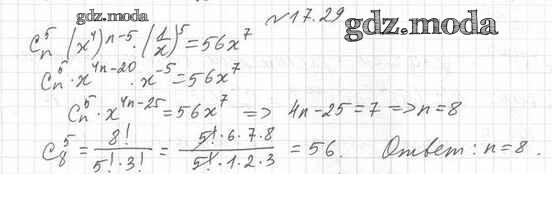 gdz.moda
№17.29
gdz.moda
C_n^5 (x^4)^{n-5} · (1/x)^5 = 56x^7
C_n^5 · x^{4n-20} · x^{-5} = 56x^7
C_n^5 · x^{4n-25} = 56x^7 => 4n-25=7 => n=8
C_8^5 = 8!/(5!·3!) = (5!·6·7·8)/(5!·1·2·3) = 56. Ответ: n=8.